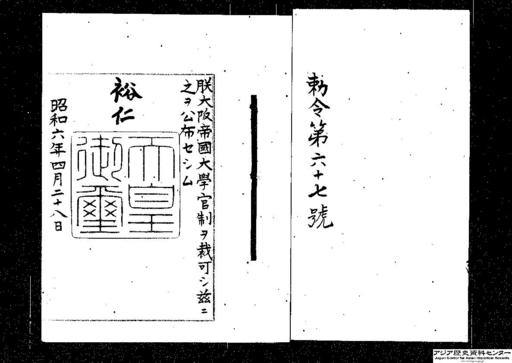 勅令第六十七號
朕大阪帝國大學官制ヲ裁可シ玆ニ
之ヲ公布セシム
裕仁
天皇
御璽
昭和六年四月二十八日
アジア歴史資料センター
Japan Center for Asian Historical Records